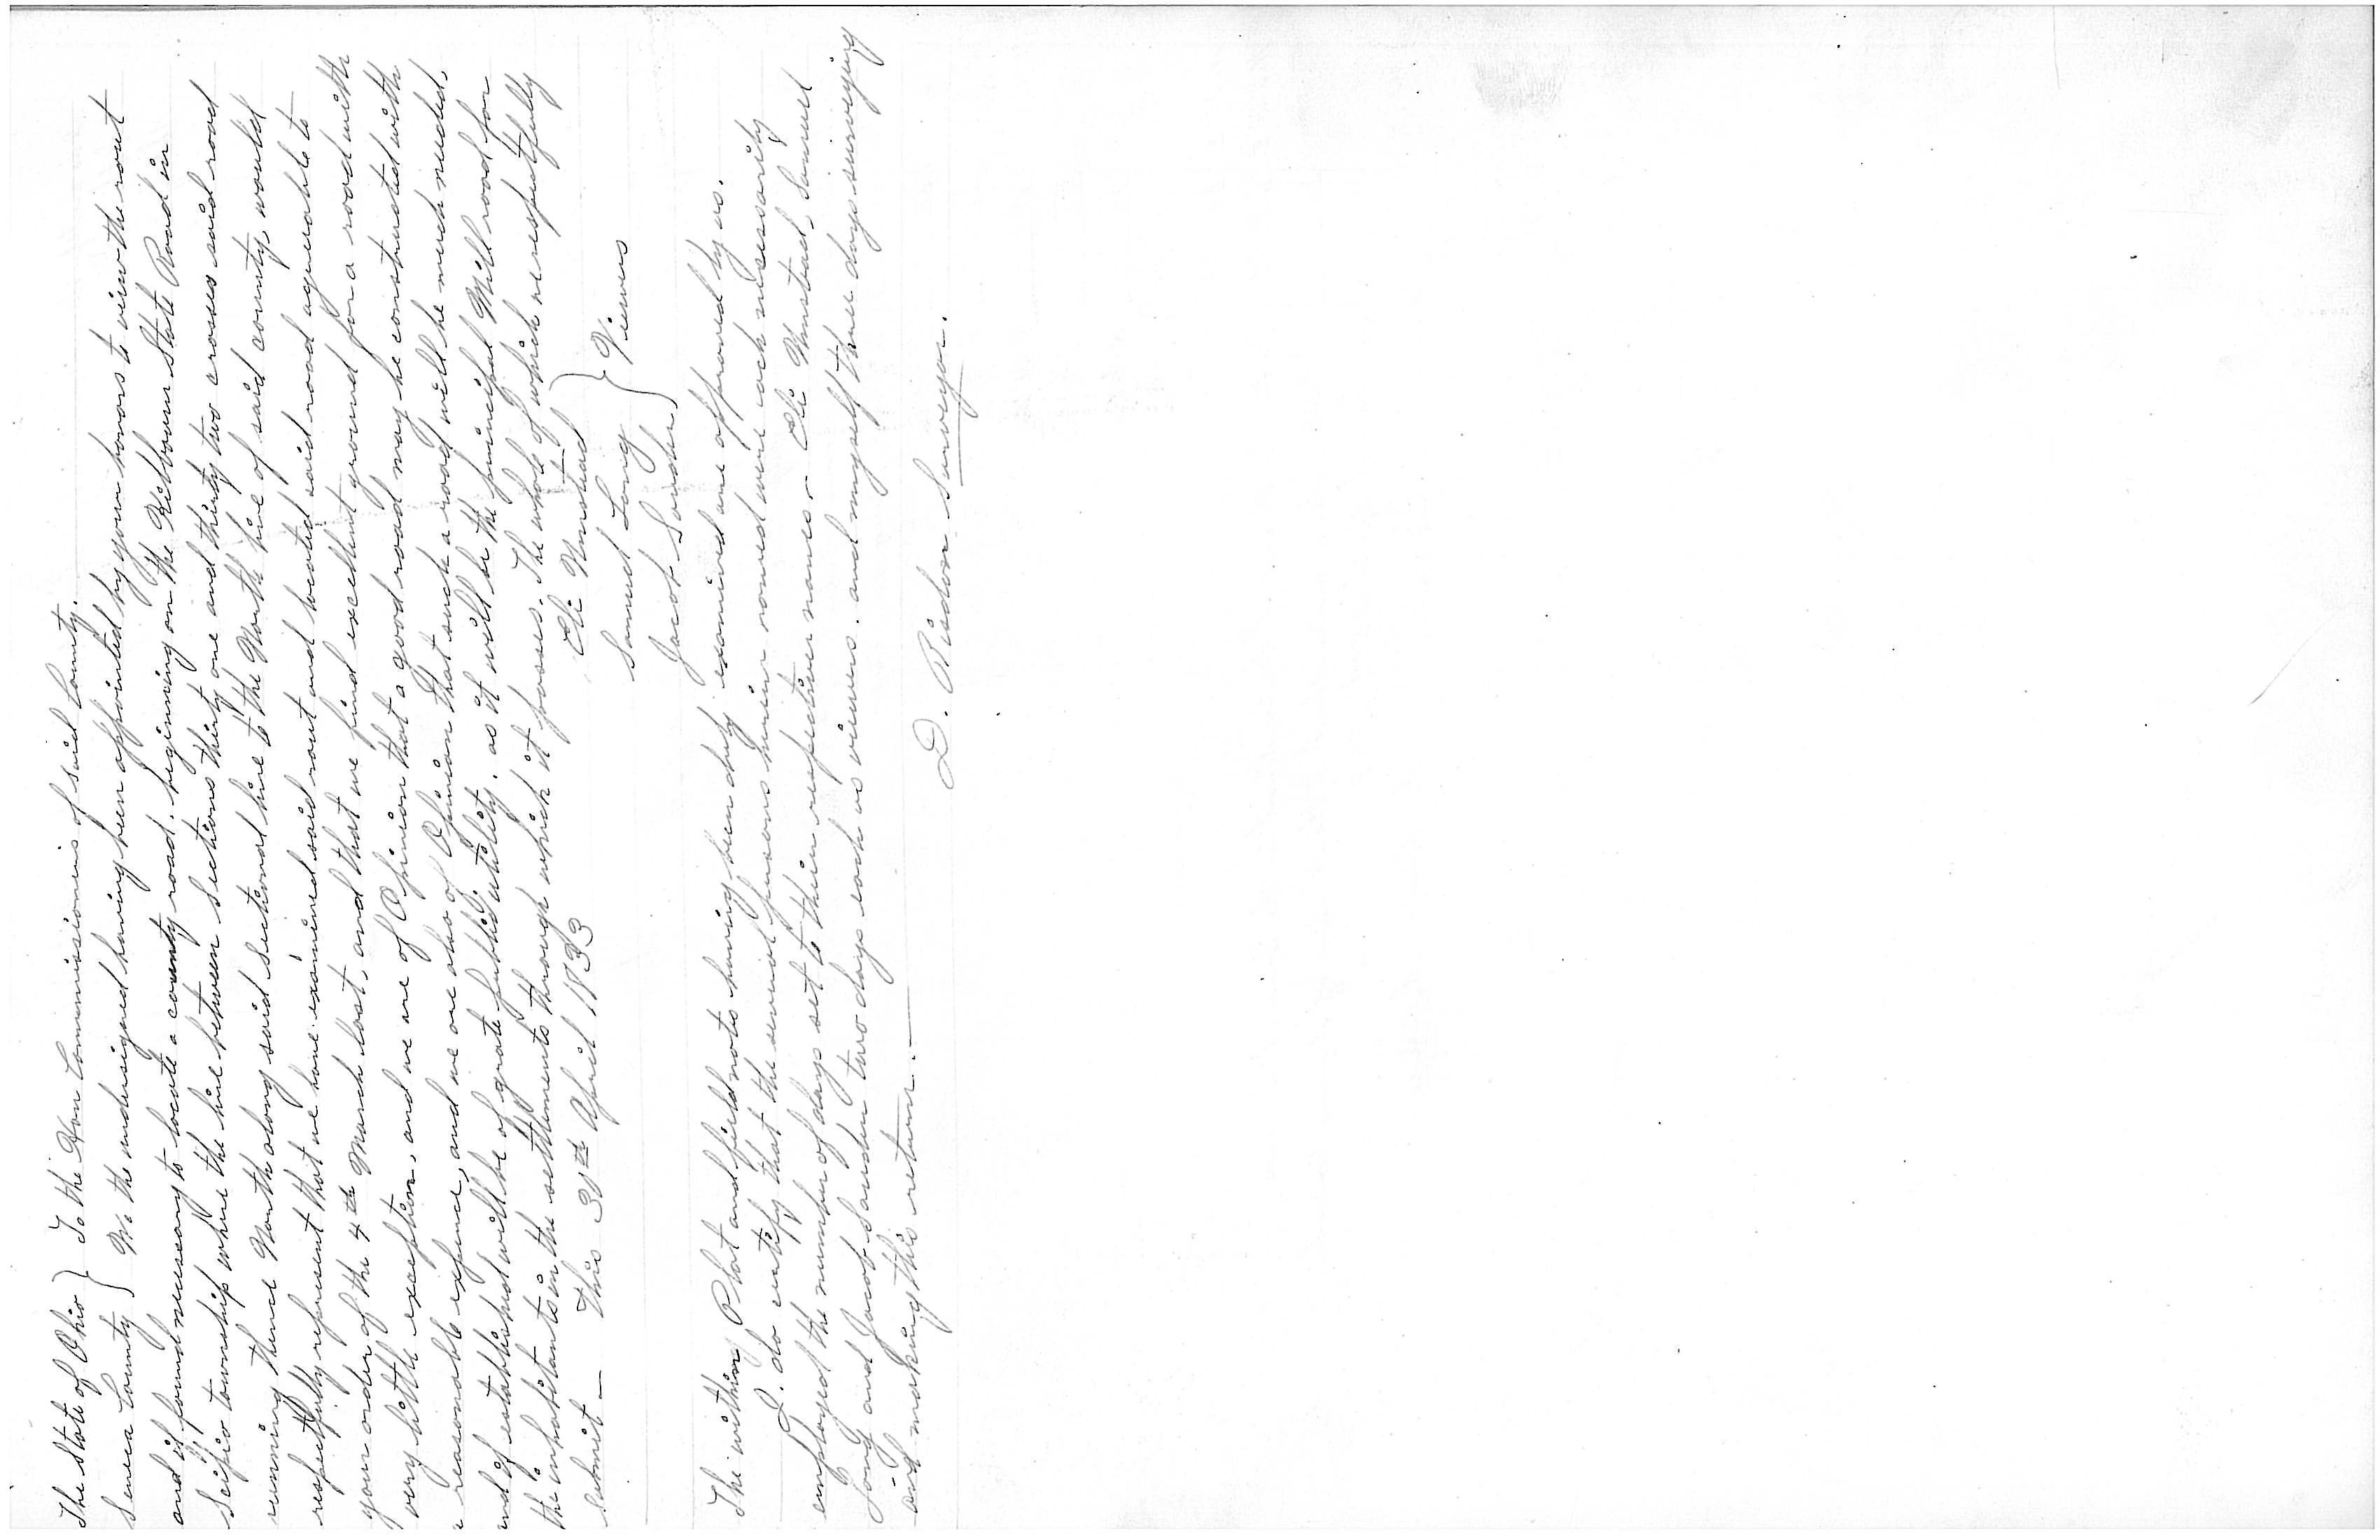 The State of Ohio } To the Hon Commissioners of said County.
Seneca County } We the undersigned having been appointed by your honors to view the rout
and if found necessary to locate a county road. beginning on the Kilbourn State Road in
Scipio township where the line between Sections thirty one and thirty two crosses said road
running thence North along said sectional line to the North line of said county, would
respectfully represent that we have examined said rout and located said road agreeable to
your order of the 4th March last, and that we find excellent ground for a road with
very little exception, and we are of Opinion that a good road may be constructed with
a reasonable expence, and we are also of Opinion that such a road will be much needed,
and if established will be of grate public utility. as it will be the principal Mill road for
the inhabitants in the settlements through which it passes. The whole of which we respectfully
submit — This 30th April 1833
Eli Umstead
Samuel Long } Viewers
Jacob Souder
The within Plat and field notes having been duly examined are approved by us.
I. do certify that the several persons herein named were each necessarily
employed the number of days set to their respective names - Eli Umstead, Samuel
Long and Jacob Souder two days each as viewers. and myself three days surveying
and making this return. —
D. Risdon Surveyor.